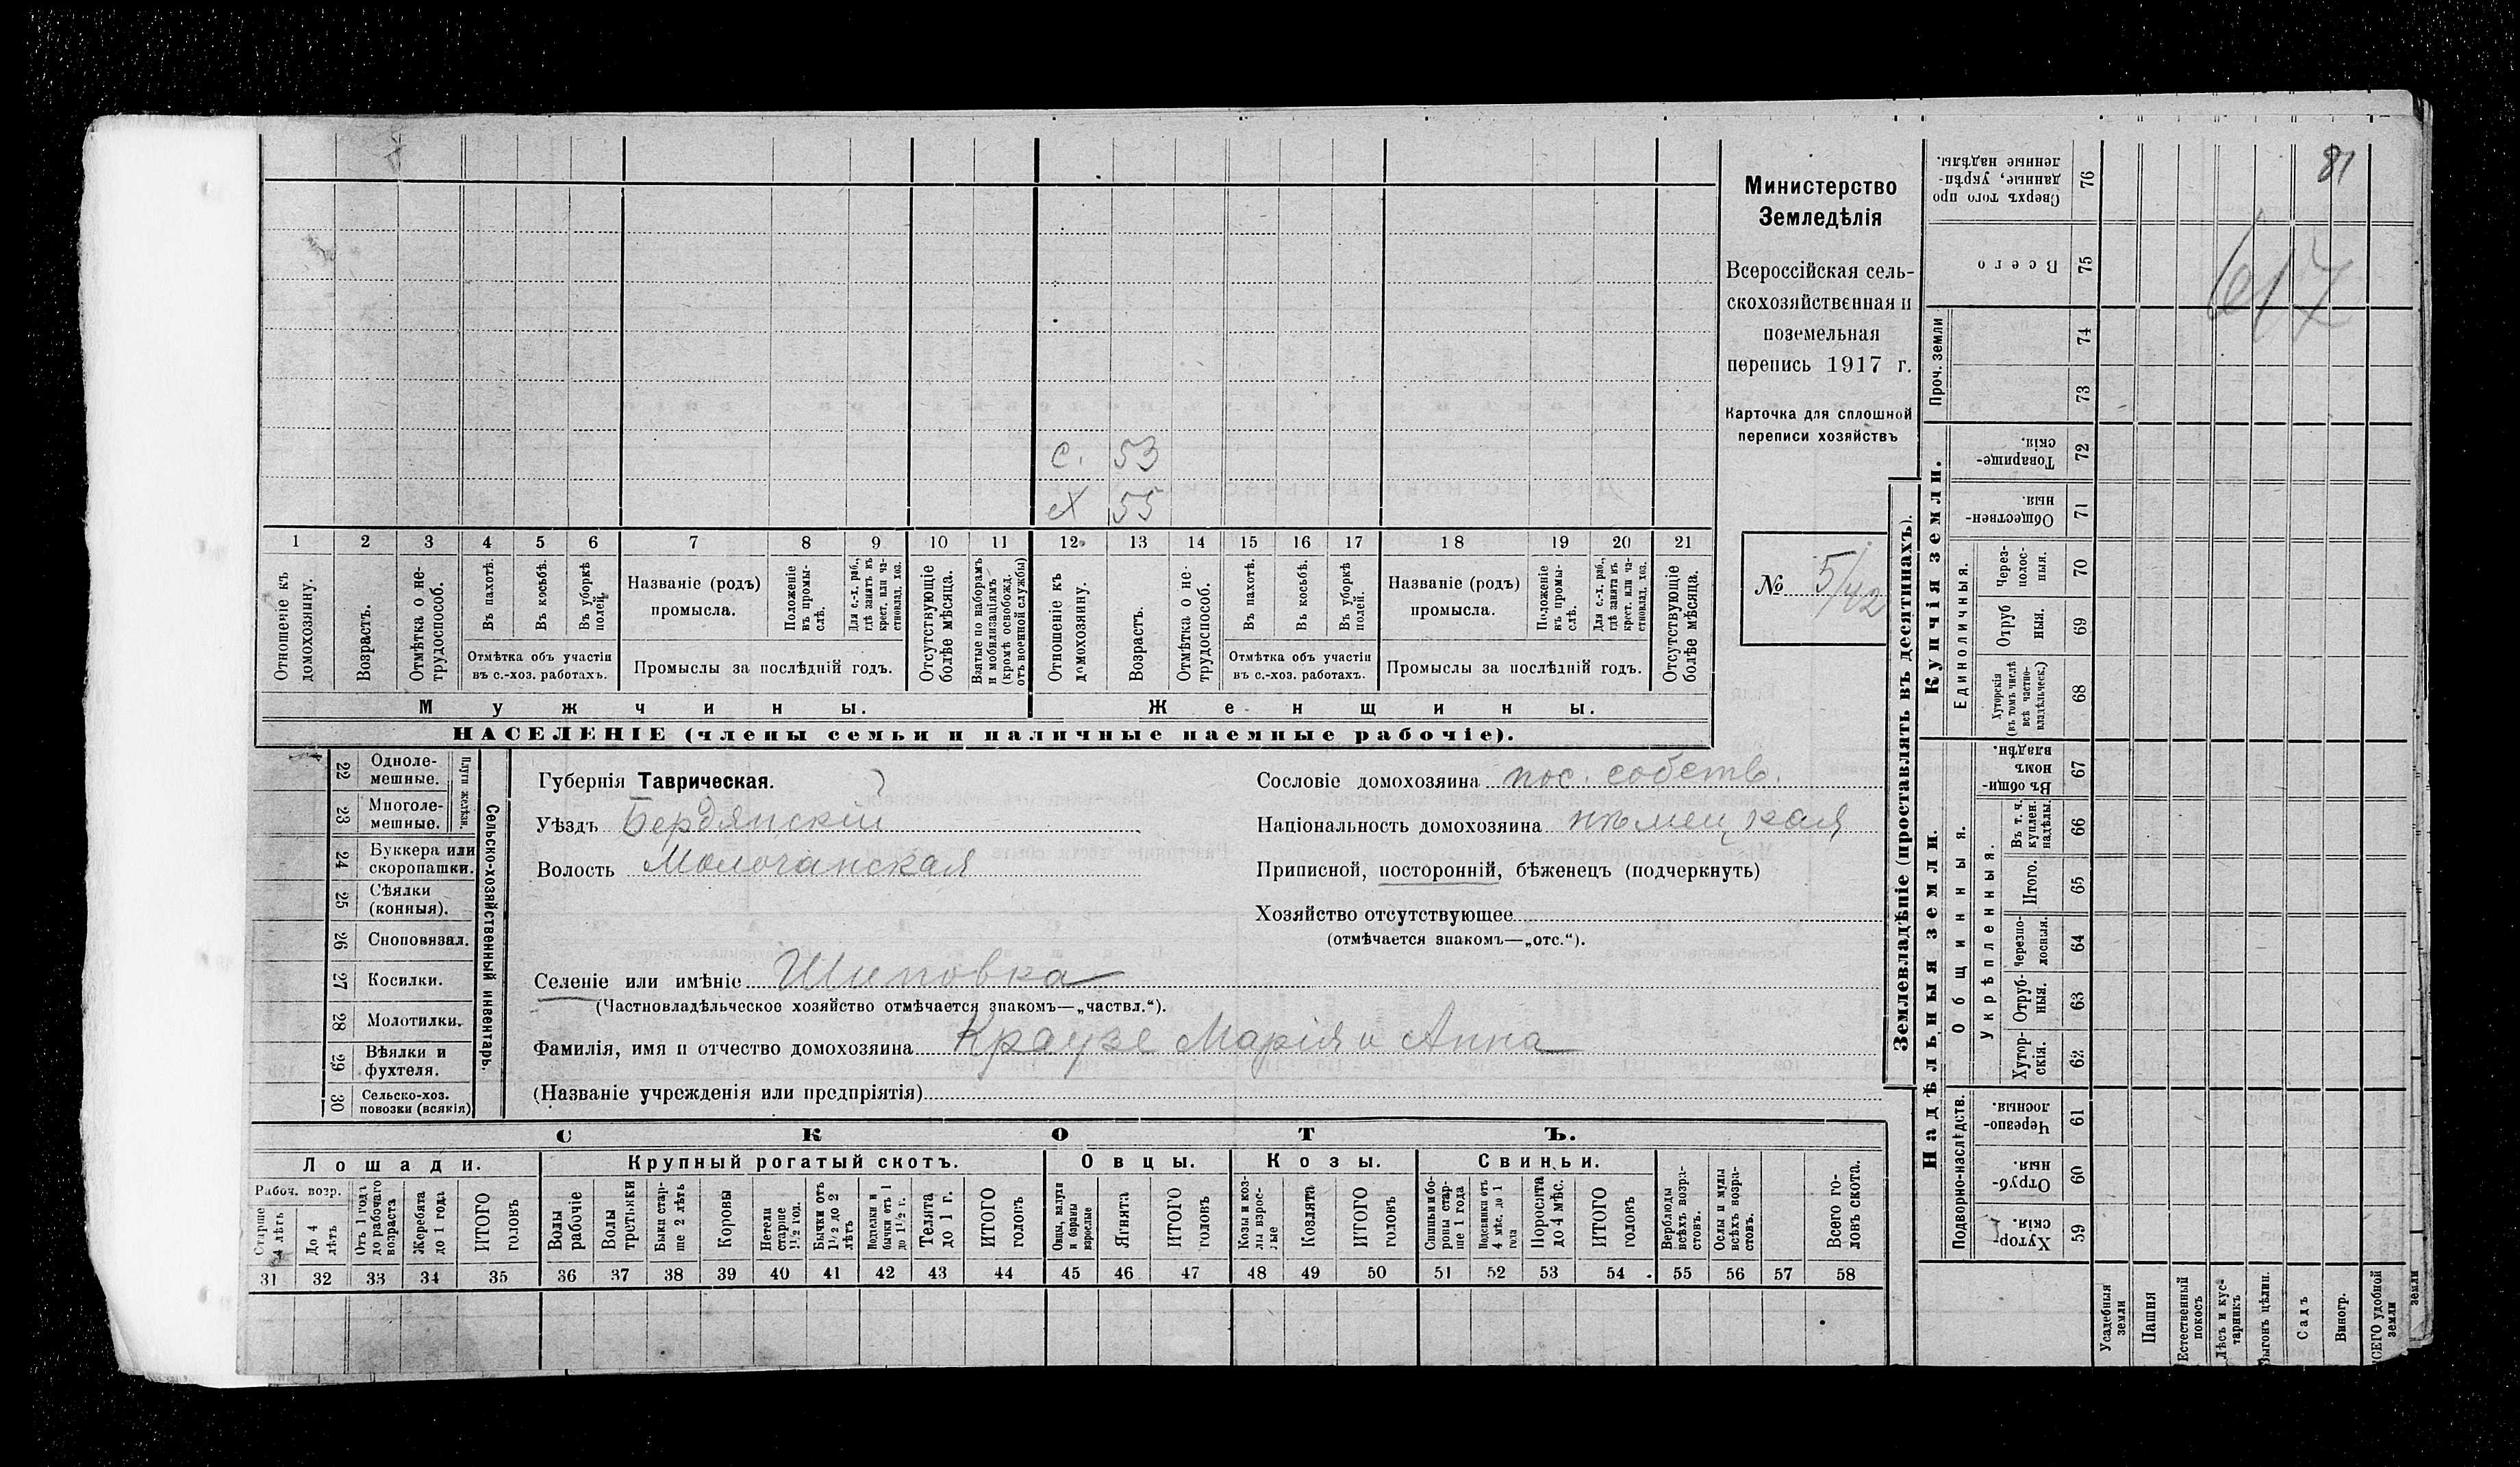 81
617
Министерство
Земледѣлія
Всероссійская сель-
скохозяйственная и
поземельная
перепись 1917 г.
Карточка для сплошной
переписи хозяйствъ
№ 5/42
с. 53
х 55
1 2 3 4 5 6 7 8 9 10 11 12 13 14 15 16 17 18 19 20 21
Отношеніе къ домохозяину.
Возрастъ.
Отмѣтка о не-трудоспособ.
Въ пахотѣ.
Въ косьбѣ.
Въ уборкѣ полей.
Отмѣтка объ участіи
въ с.-хоз. работахъ.
Названіе (родъ)
промысла.
Положеніе въ промы-слѣ.
Для с.-х. раб., гдѣ занятъ въ крест. или ча-стновлад. хоз.
Промыслы за послѣдній годъ.
Отсутствующіе болѣе мѣсяца.
Взятые по наборамъ и мобилизаціямъ (кромѣ освобожд. отъ военной службы)
Отношеніе къ домохозяину.
Возрастъ.
Отмѣтка о не-трудоспособ.
Въ пахотѣ.
Въ косьбѣ.
Въ уборкѣ полей.
Отмѣтка объ участіи
въ с.-хоз. работахъ.
Названіе (родъ)
промысла.
Положеніе въ промы-слѣ.
Для с.-х. раб., гдѣ занята въ крест. или ча-стновлад. хоз.
Промыслы за послѣдній годъ.
Отсутствующіе болѣе мѣсяца.
Мужчины. Женщины.
НАСЕЛЕНІЕ (члены семьи и наличные наемные рабочіе).
Сельско-хозяйственный инвентарь.
Плуги желѣзн.
22 Одноле-мешные.
23 Многоле-мешные.
24 Буккера или скоропашки.
25 Сѣялки (конныя).
26 Сноповязал.
27 Косилки.
28 Молотилки.
29 Вѣялки и фухтеля.
30 Сельско-хоз. повозки (всякія)
Губернія Таврическая.
Уѣздъ Бердянскій
Волость Молочанская
Сословіе домохозяина пос. собств.
Національность домохозяина нѣмецкая
Приписной, посторонній, бѣженецъ (подчеркнуть)
Хозяйство отсутствующее
(отмѣчается знакомъ—„отс.“).
Селеніе или имѣніе Шиповка
(Частновладѣльческое хозяйство отмѣчается знакомъ—„частвл.“).
Фамилія, имя и отчество домохозяина Краузе Марія и Анна
(Названіе учрежденія или предпріятія)
СКОТЪ.
Лошади. Крупный рогатый скотъ. Овцы. Козы. Свиньи.
Рабоч. возр.
Старше 4 лѣтъ
До 4 лѣтъ
Отъ 1 года до рабочаго возраста
Жеребята до 1 года
ИТОГО головъ
Волы рабочіе
Волы третьяки
Быки стар-ше 2 лѣтъ
Коровы
Нетели старше 1½ год.
Бычки отъ 1½ до 2 лѣтъ
Подтелки и бычки отъ 1 до 1½ г.
Телята до 1 г.
ИТОГО головъ
Овцы, валухи и бараны взрослые
Ягнята
ИТОГО головъ
Козы и коз-лы взрос-лые
Козлята
ИТОГО головъ
Свиньи и бо-ровы стар-ше 1 года
Подсвинки отъ 4 мѣс. до 1 года
Поросята до 4 мѣс.
ИТОГО головъ
Верблюды всѣхъ возра-стовъ.
Ослы и мулы всѣхъ возра-стовъ.
Всего го-ловъ скота.
31 32 33 34 35 36 37 38 39 40 41 42 43 44 45 46 47 48 49 50 51 52 53 54 55 56 57 58
Землевладѣніе (проставлять въ десятинахъ).
Купчія земли.
Надѣльныя земли.
Сверхъ того про данные, укрѣп-ленные надѣлы. 76
Всего 75
Проч. земли 74 73
Товарище-скія. 72
Обществен-ныя. 71
Единоличныя.
Через-полос-ныя. 70
Отруб ныя. 69
Хуторскія (въ томъ числѣ всѣ частно-владѣльческ.) 68
Общинныя.
Въ общи-номъ владѣн. 67
Укрѣпленныя.
Въ т. ч. куплен. надѣлы. 66
Итого. 65
Черезпо-лосныя. 64
Отруб-ныя. 63
Хутор-скія. 62
Подворно-наслѣдств.
Черезпо-лосныя. 61
Отруб-ныя. 60
Хутор-скія. 59
Усадебныя земли
Пашня
Естественный покосъ
Лѣсъ и кус-тарникъ
Выгонъ цѣлин.
Садъ
Виногр.
ВСЕГО удобной земли
земли